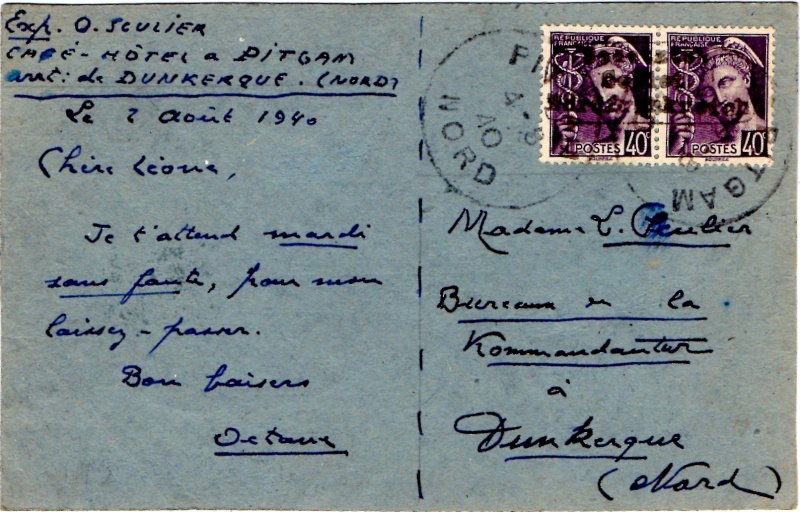 Exp. O. SCULIER
CAFÉ-HÔTEL à PITGAM
arrt: de DUNKERQUE. (NORD)
Le 2 Août 1940
Chère Léone,
Je t'attend mardi
sans faute, pour mon
laissez-passer.
Bon baisers
Octave
RÉPUBLIQUE FRANÇAISE
POSTES 40c
RÉPUBLIQUE FRANÇAISE
POSTES 40c
PITGAM
NORD
Madame L. Sculier
Bureaux de la
Kommandantur
à
Dunkerque
(Nord)